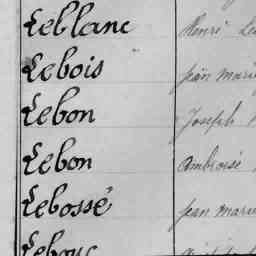 Leblanc Henri
Lebois Jean Marie
Lebon Joseph
Lebon Ambroise
Lebossé Jean Marie
Lebouc